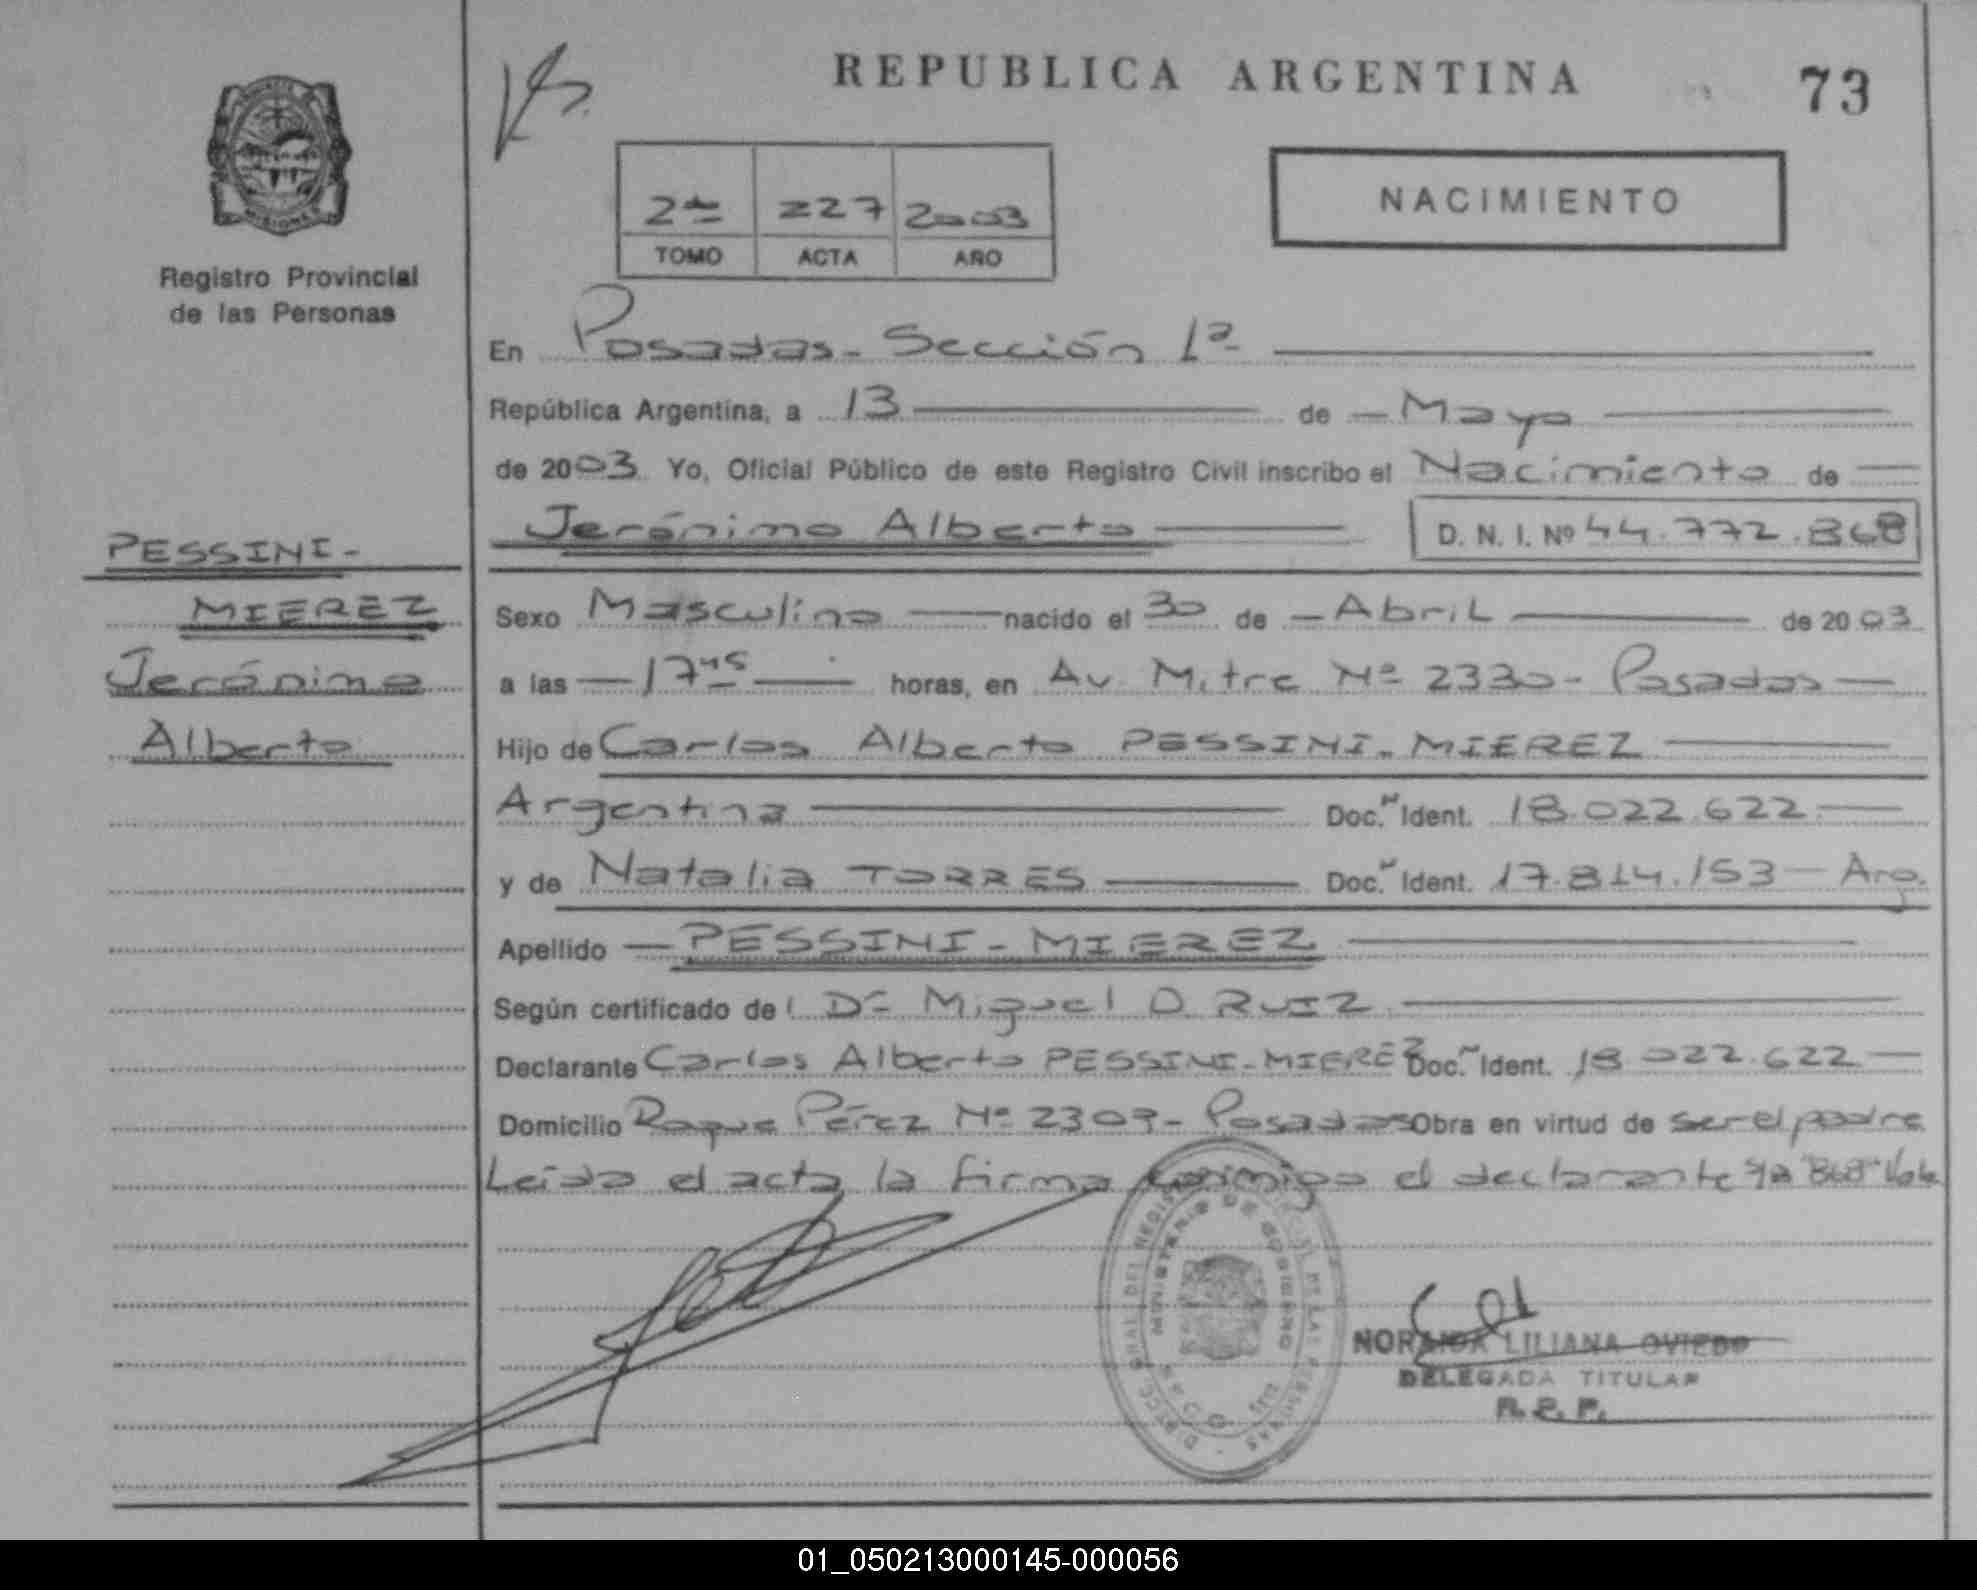 REPUBLICA ARGENTINA
73
MISIONES
Registro Provincial
de las Personas
2do 227 2003
TOMO ACTA AÑO
NACIMIENTO
En Posadas - Sección 1a
República Argentina, a 13 de Mayo
de 2003 Yo, Oficial Público de este Registro Civil inscribo el Nacimiento de
Jerónimo Alberto D. N. I. Nº 44.772.868
PESSINI-
MIEREZ
Jerónimo
Alberto
Sexo Masculino nacido el 30 de Abril de 2003
a las 17 45 horas, en Av. Mitre Nº 2330 - Posadas
Hijo de Carlos Alberto PESSINI-MIEREZ
Argentina Doc. N Ident. 18.022.622
y de Natalia TORRES Doc. N Ident. 17.814.153 - Arg.
Apellido PESSINI-MIEREZ
Según certificado de Dr Miguel O. RUIZ
Declarante Carlos Alberto PESSINI-MIEREZ Doc. N Ident. 18.022.622
Domicilio Roque Pérez Nº 2309 - Posadas Obra en virtud de ser el padre
Leída el acta la firma conmigo el declarante "868" Vale
MINISTERIO DE GOBIERNO
NORAIDA LILIANA OVIEDO
DELEGADA TITULAR
R. P. P.
01_050213000145-000056